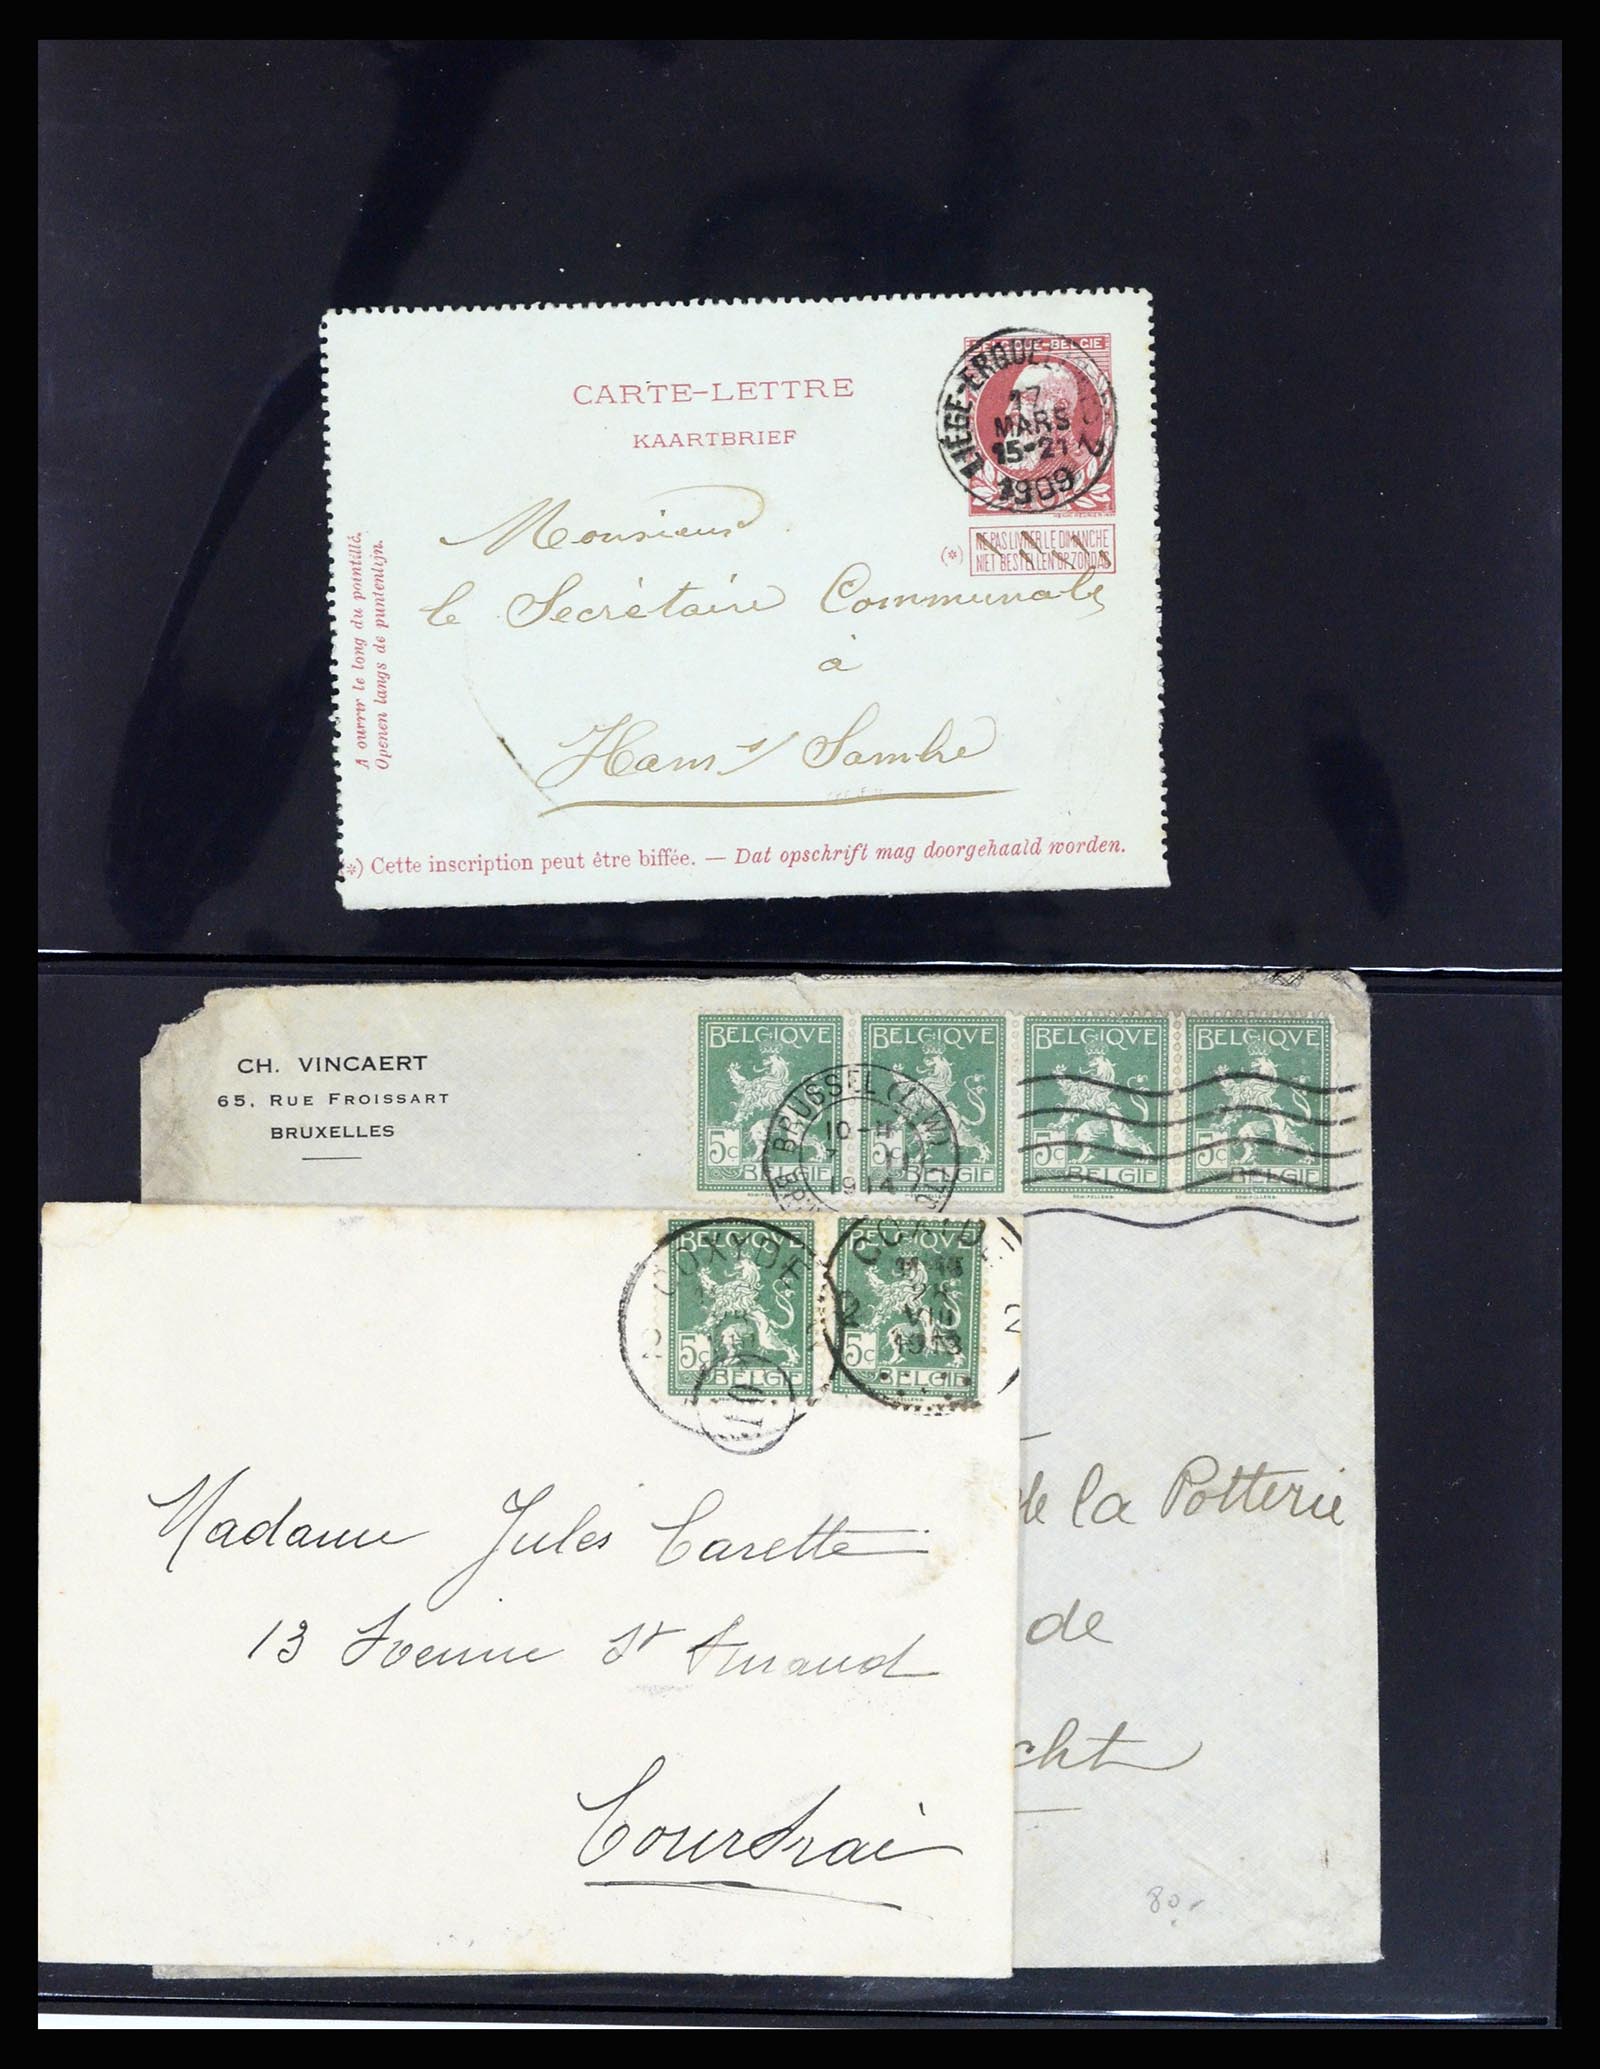 CARTE-LETTRE
KAARTBRIEF
BELGIQUE-BELGIE
17
MARS
15-21
1909
(*)
NE PAS LIVRER LE DIMANCHE
NIET BESTELLEN OP ZONDAG
Monsieur
le Secrétaire Communale
à
Ham s/ Sambre
A ouvrir le long du pointillé.
Openen langs de puntenlijn.
(*) Cette inscription peut être biffée. — Dat opschrift mag doorgehaald worden.
CH. VINCAERT
65, RUE FROISSART
BRUXELLES
BELGIQVE
5c
BELGIE
BELGIQVE
5c
BELGIE
BELGIQVE
5c
BELGIE
BELGIQVE
5c
BELGIE
BRUSSEL
10-11
1914
BELGIQVE
5c
BELGIE
BELGIQVE
5c
BELGIE
COXYDE
2
VIII
1913
2
Madame Jules Carette
13 Avenue St Amand
Courtrai
de la Potterie
de
cht
80.-